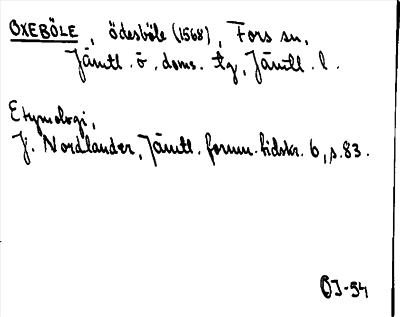 OXEBÖLE, ödesböle (1568), Fors sn,
Jämtl. ö. doms. tg, Jämtl. l.
Etymologi,
J. Nordlander, Jämtl. fornm. tidskr. 6, s. 83.
ÖJ-54